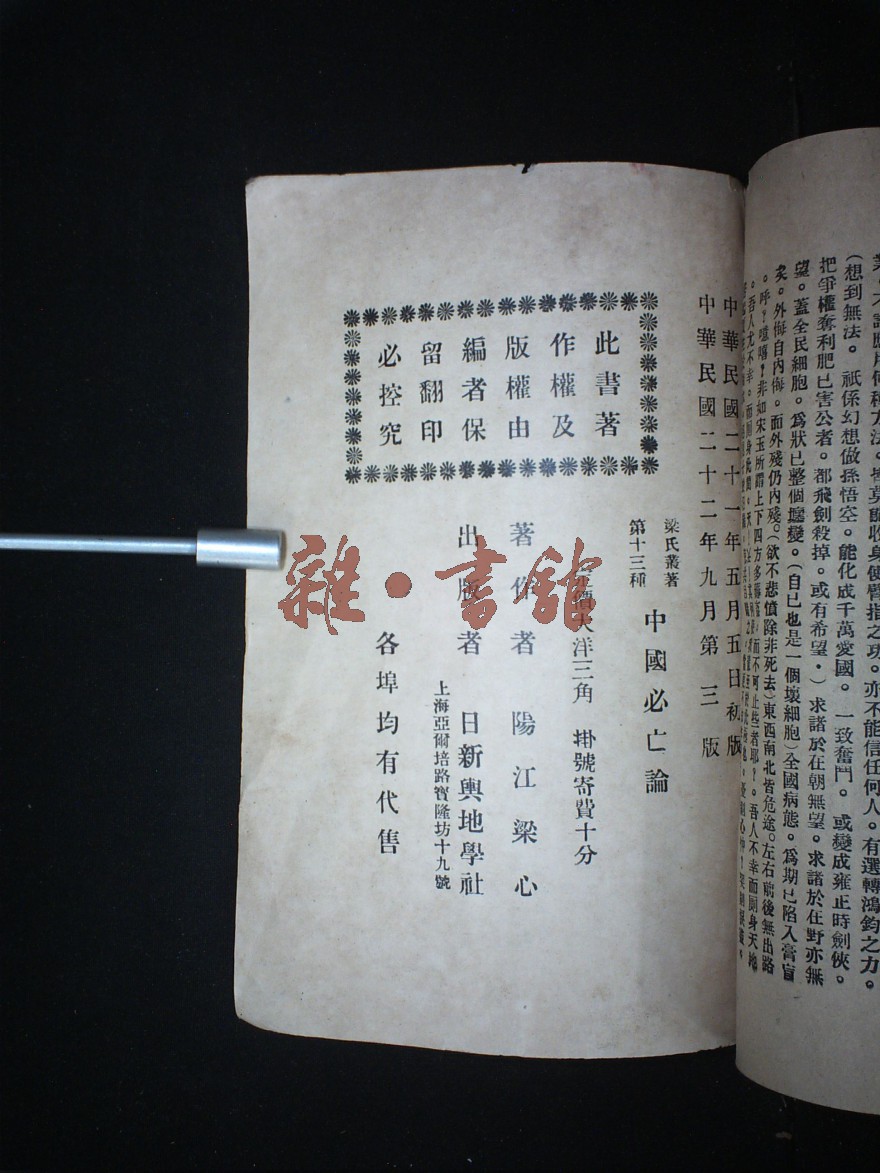 (想到無法。祇係幻想做孫悟空。能化成千萬愛國。一致奮鬥。或變成雍正時劍俠。
把爭權奪利肥已害公者。都飛劍殺掉。或有希望。)求諸於在朝無望。求諸於在野亦無
望。蓋全民細胞。爲狀已整個壞變。(自已也是一個壞細胞)全國病態。爲期已陷入膏肓
矣。外侮自內侮。面外殘仍內殘。(欲不悲憤除非死去)東西南北皆危途。左右前後無出路
中華民國二十一年五月五日初版
中華民國二十二年九月第三版
梁氏叢著
第十三種
中國必亡論
價大洋三角 掛號寄費十分
著作者 陽江梁心
出版者 日新輿地學社
上海亞爾培路寶隆坊十九號
各埠均有代售
此書著
作權及
版權由
編者保
留翻印
必控究
雜·書館